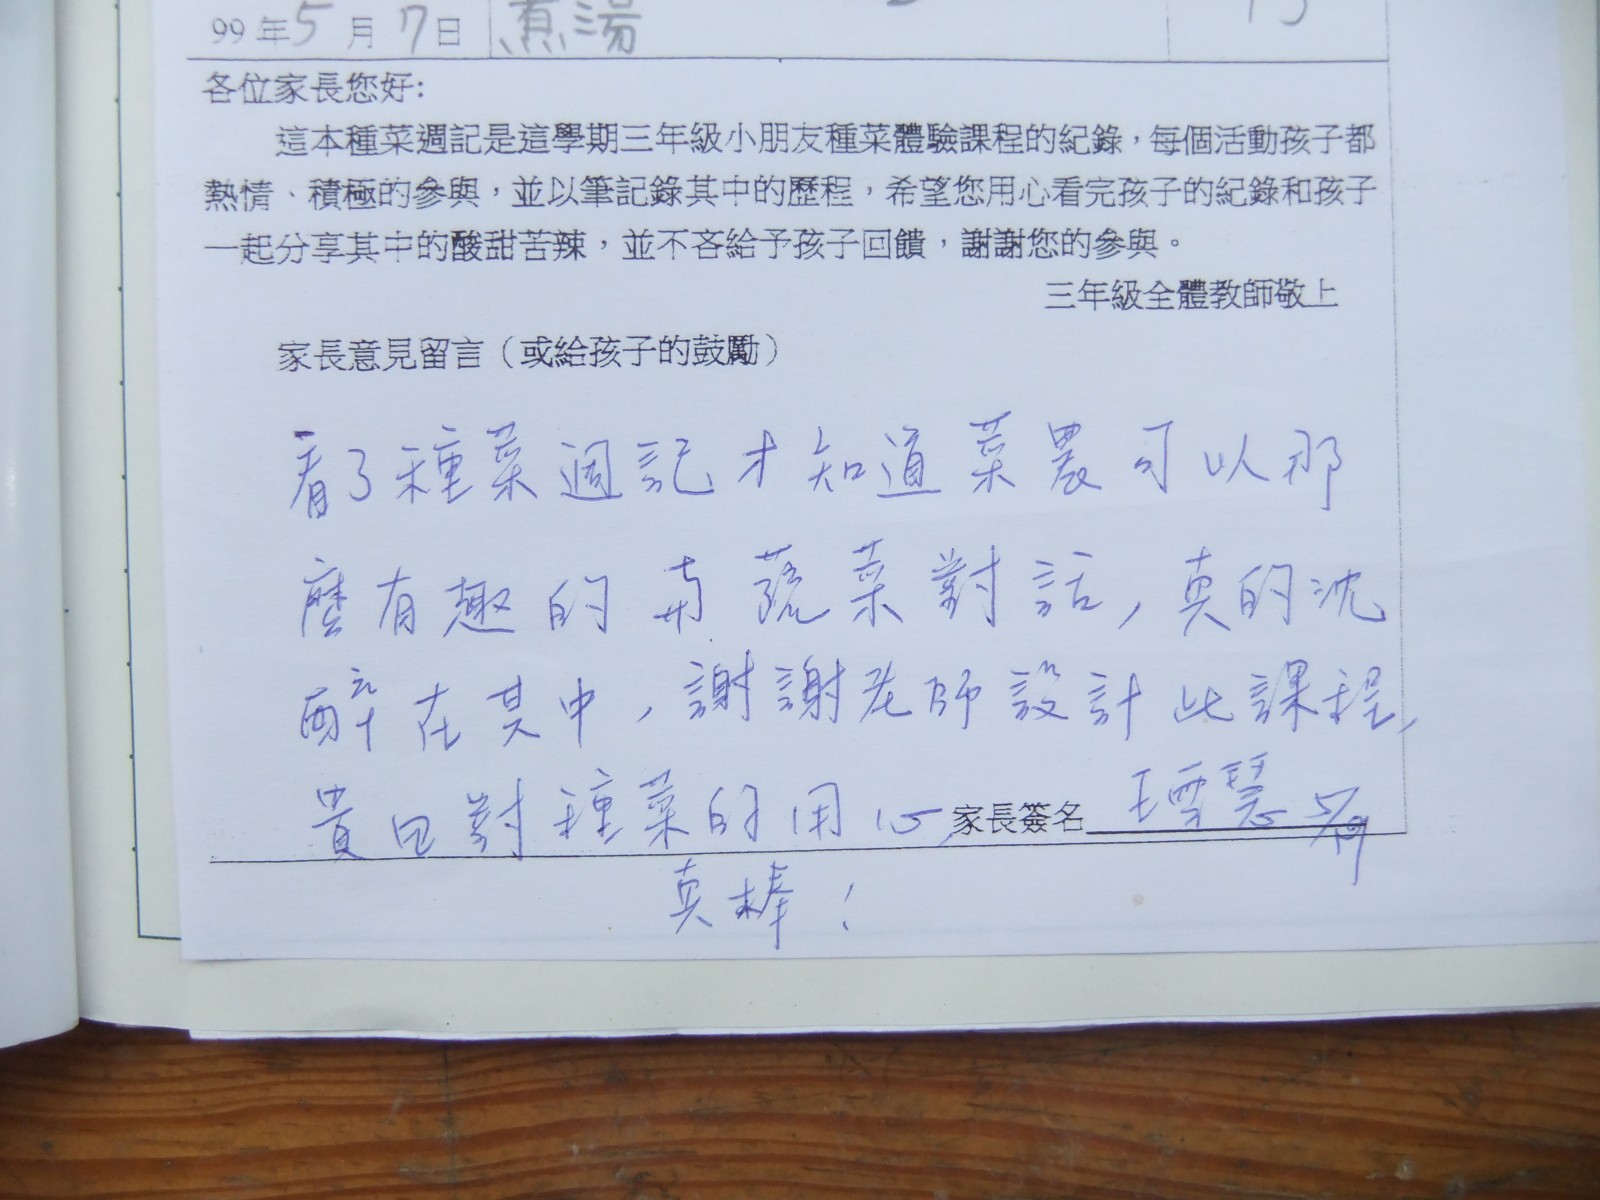 99年5月7日 煮湯
各位家長您好:
這本種菜週記是這學期三年級小朋友種菜體驗課程的紀錄，每個活動孩子都
熱情、積極的參與，並以筆記錄其中的歷程，希望您用心看完孩子的紀錄和孩子
一起分享其中的酸甜苦辣，並不吝給予孩子回饋，謝謝您的參與。
三年級全體教師敬上
家長意見留言（或給孩子的鼓勵）
看了種菜週記才知道菜農可以那
麼有趣的與蔬菜對話，真的沈
醉在其中，謝謝老師設計此課程，
對種菜的用心 家長簽名
真棒！